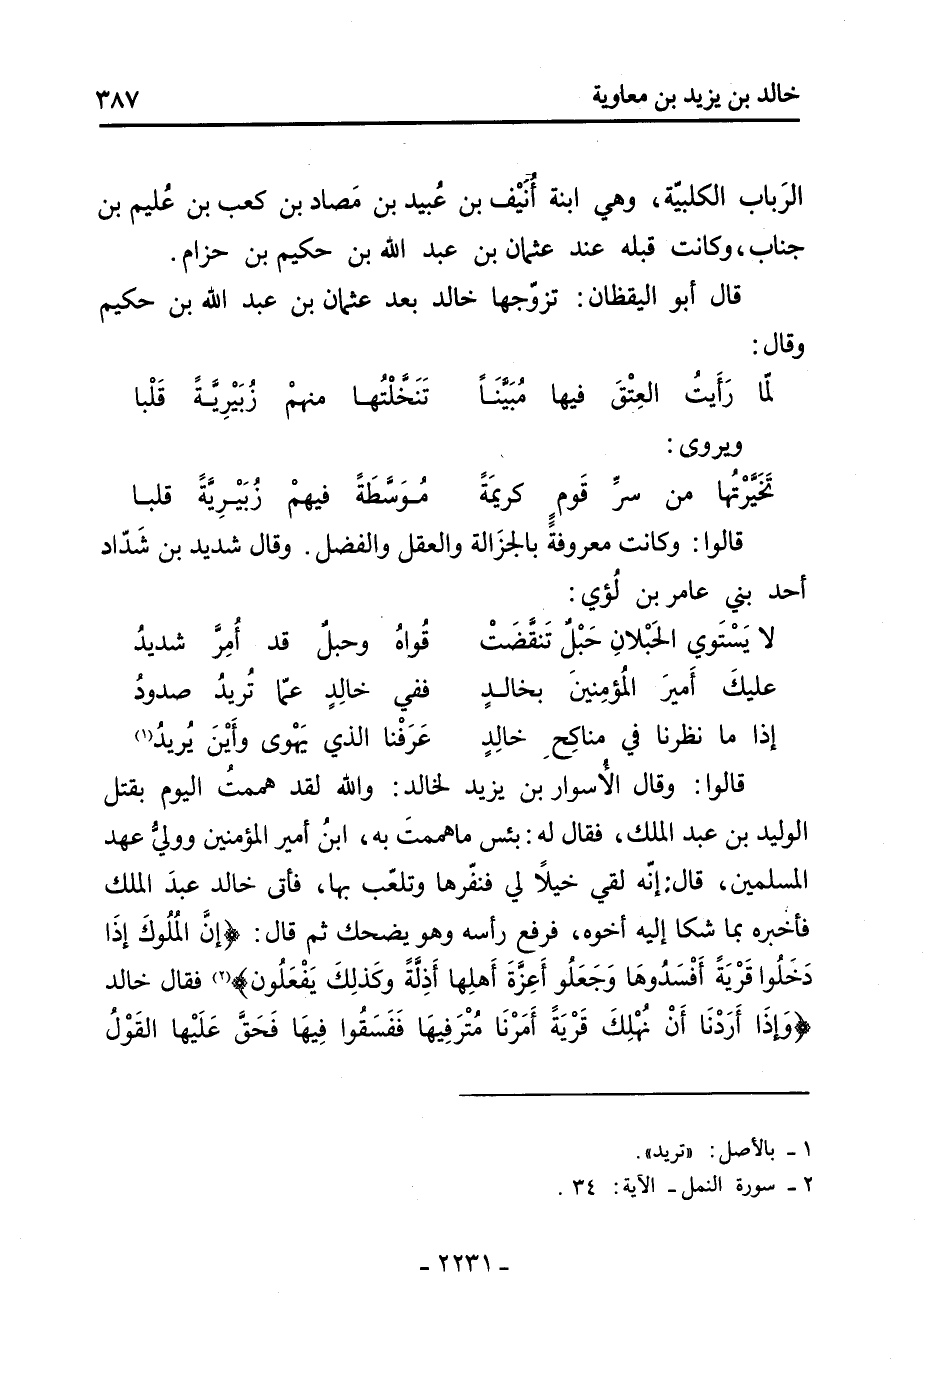 خالد بن يزيد بن معاوية ٣٨٧
الرَباب الكلبيّة، وهي ابنة أُنَيْف بن عُبيد بن مَصاد بن كعب بن عُليم بن
جناب، وكانت قبله عند عثمان بن عبد الله بن حكيم بن حزام.
قال أبو اليقظان: تزوّجها خالد بعد عثمان بن عبد الله بن حكيم
وقال:
لمّا رَأَيتُ العِتْقَ فيها مُبَيَّنَاً تَنَخَّلْتُهـا منهمْ زُبَيْرِيَّـةً قَلْبا
ويروى:
تَخَيَّرْتُها من سرِّ قَومٍ كريمَةً مُـوَسَّطَةً فيهمْ زُبَيْـرِيَّةً قلبـا
قالوا: وكانت معروفةً بالجزَالة والعقل والفضل. وقال شديد بن شَدّاد
أحد بني عامر بن لُؤي:
لا يَسْتَوي الحَبْلانِ حَبْلٌ تَنقَّضَتْ قُواهُ وحبلٌ قد أُمِرَّ شديدُ
عليكَ أَميرَ المُؤمِنينَ بخالـدٍ ففي خالِدٍ عمّا تُريدُ صدودُ
إذا ما نظرنا في مناكِحِ خالِدٍ عَرَفْنا الذي يَهْوى وأَيْنَ يُريدُ(١)
قالوا: وقال الأُسوار بن يزيد لخالد: والله لقد هممتُ اليوم بقتل
الوليد بن عبد الملك، فقال له: بئس ماهممتَ به، ابنُ أمير المؤمنين ووليُّ عهد
المسلمين، قال: إنّه لقي خيلاً لي فنفّرها وتلعّب بها، فأتى خالد عبدَ الملك
فأخبره بما شكا إليه أخوه، فرفع رأسه وهو يضحك ثم قال: ﴿إِنَّ المُلُوكَ إِذَا
دَخَلُوا قَرْيَةً أَفْسَدُوهَا وَجَعَلُو أَعِزَّةَ أَهلِها أَذِلَّةً وكَذلِكَ يَفْعَلُون﴾(٢) فقال خالد
﴿وَإِذَا أَرَدْنَا أَنْ نُهْلِكَ قَرْيَةً أَمَرْنَا مُتْرَفِيهَا فَفَسَقُوا فِيهَا فَحَقَّ عَلَيْها القَوْلُ
١ ـ بالأصل: «تريد».
٢ ـ سورة النمل ـ الآية: ٣٤ .
ـ ٢٢٣١ ـ